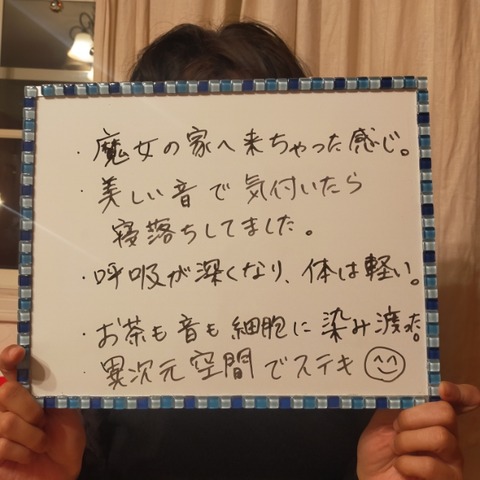 ・魔女の家へ来ちゃった感じ。
・美しい音で気付いたら
寝落ちしてました。
・呼吸が深くなり、体は軽い。
・お茶も音も細胞に染み渡た。
・異次元空間でステキ